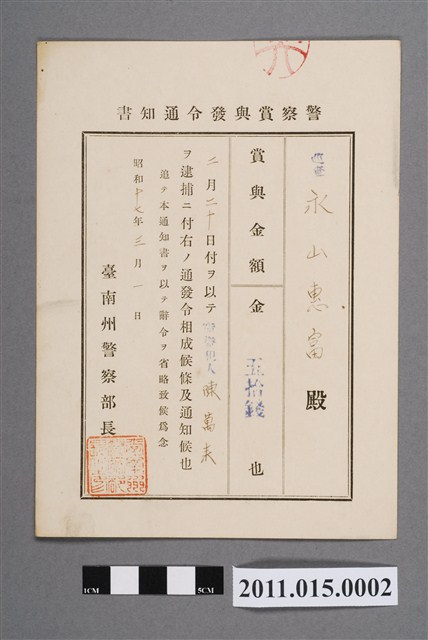 警察賞與發令通知書
巡查 永山惠富 殿
賞與金額 金 五拾錢 也
二月二十日付ヲ以テ 犯人 陳萬来
ヲ逮捕ニ付右ノ通發令相成候條及通知候也
追テ本通知書ヲ以テ辭令ヲ省略致候爲念
昭和十七年三月一日
臺南州警察部長
1CM 5CM
2011.015.0002